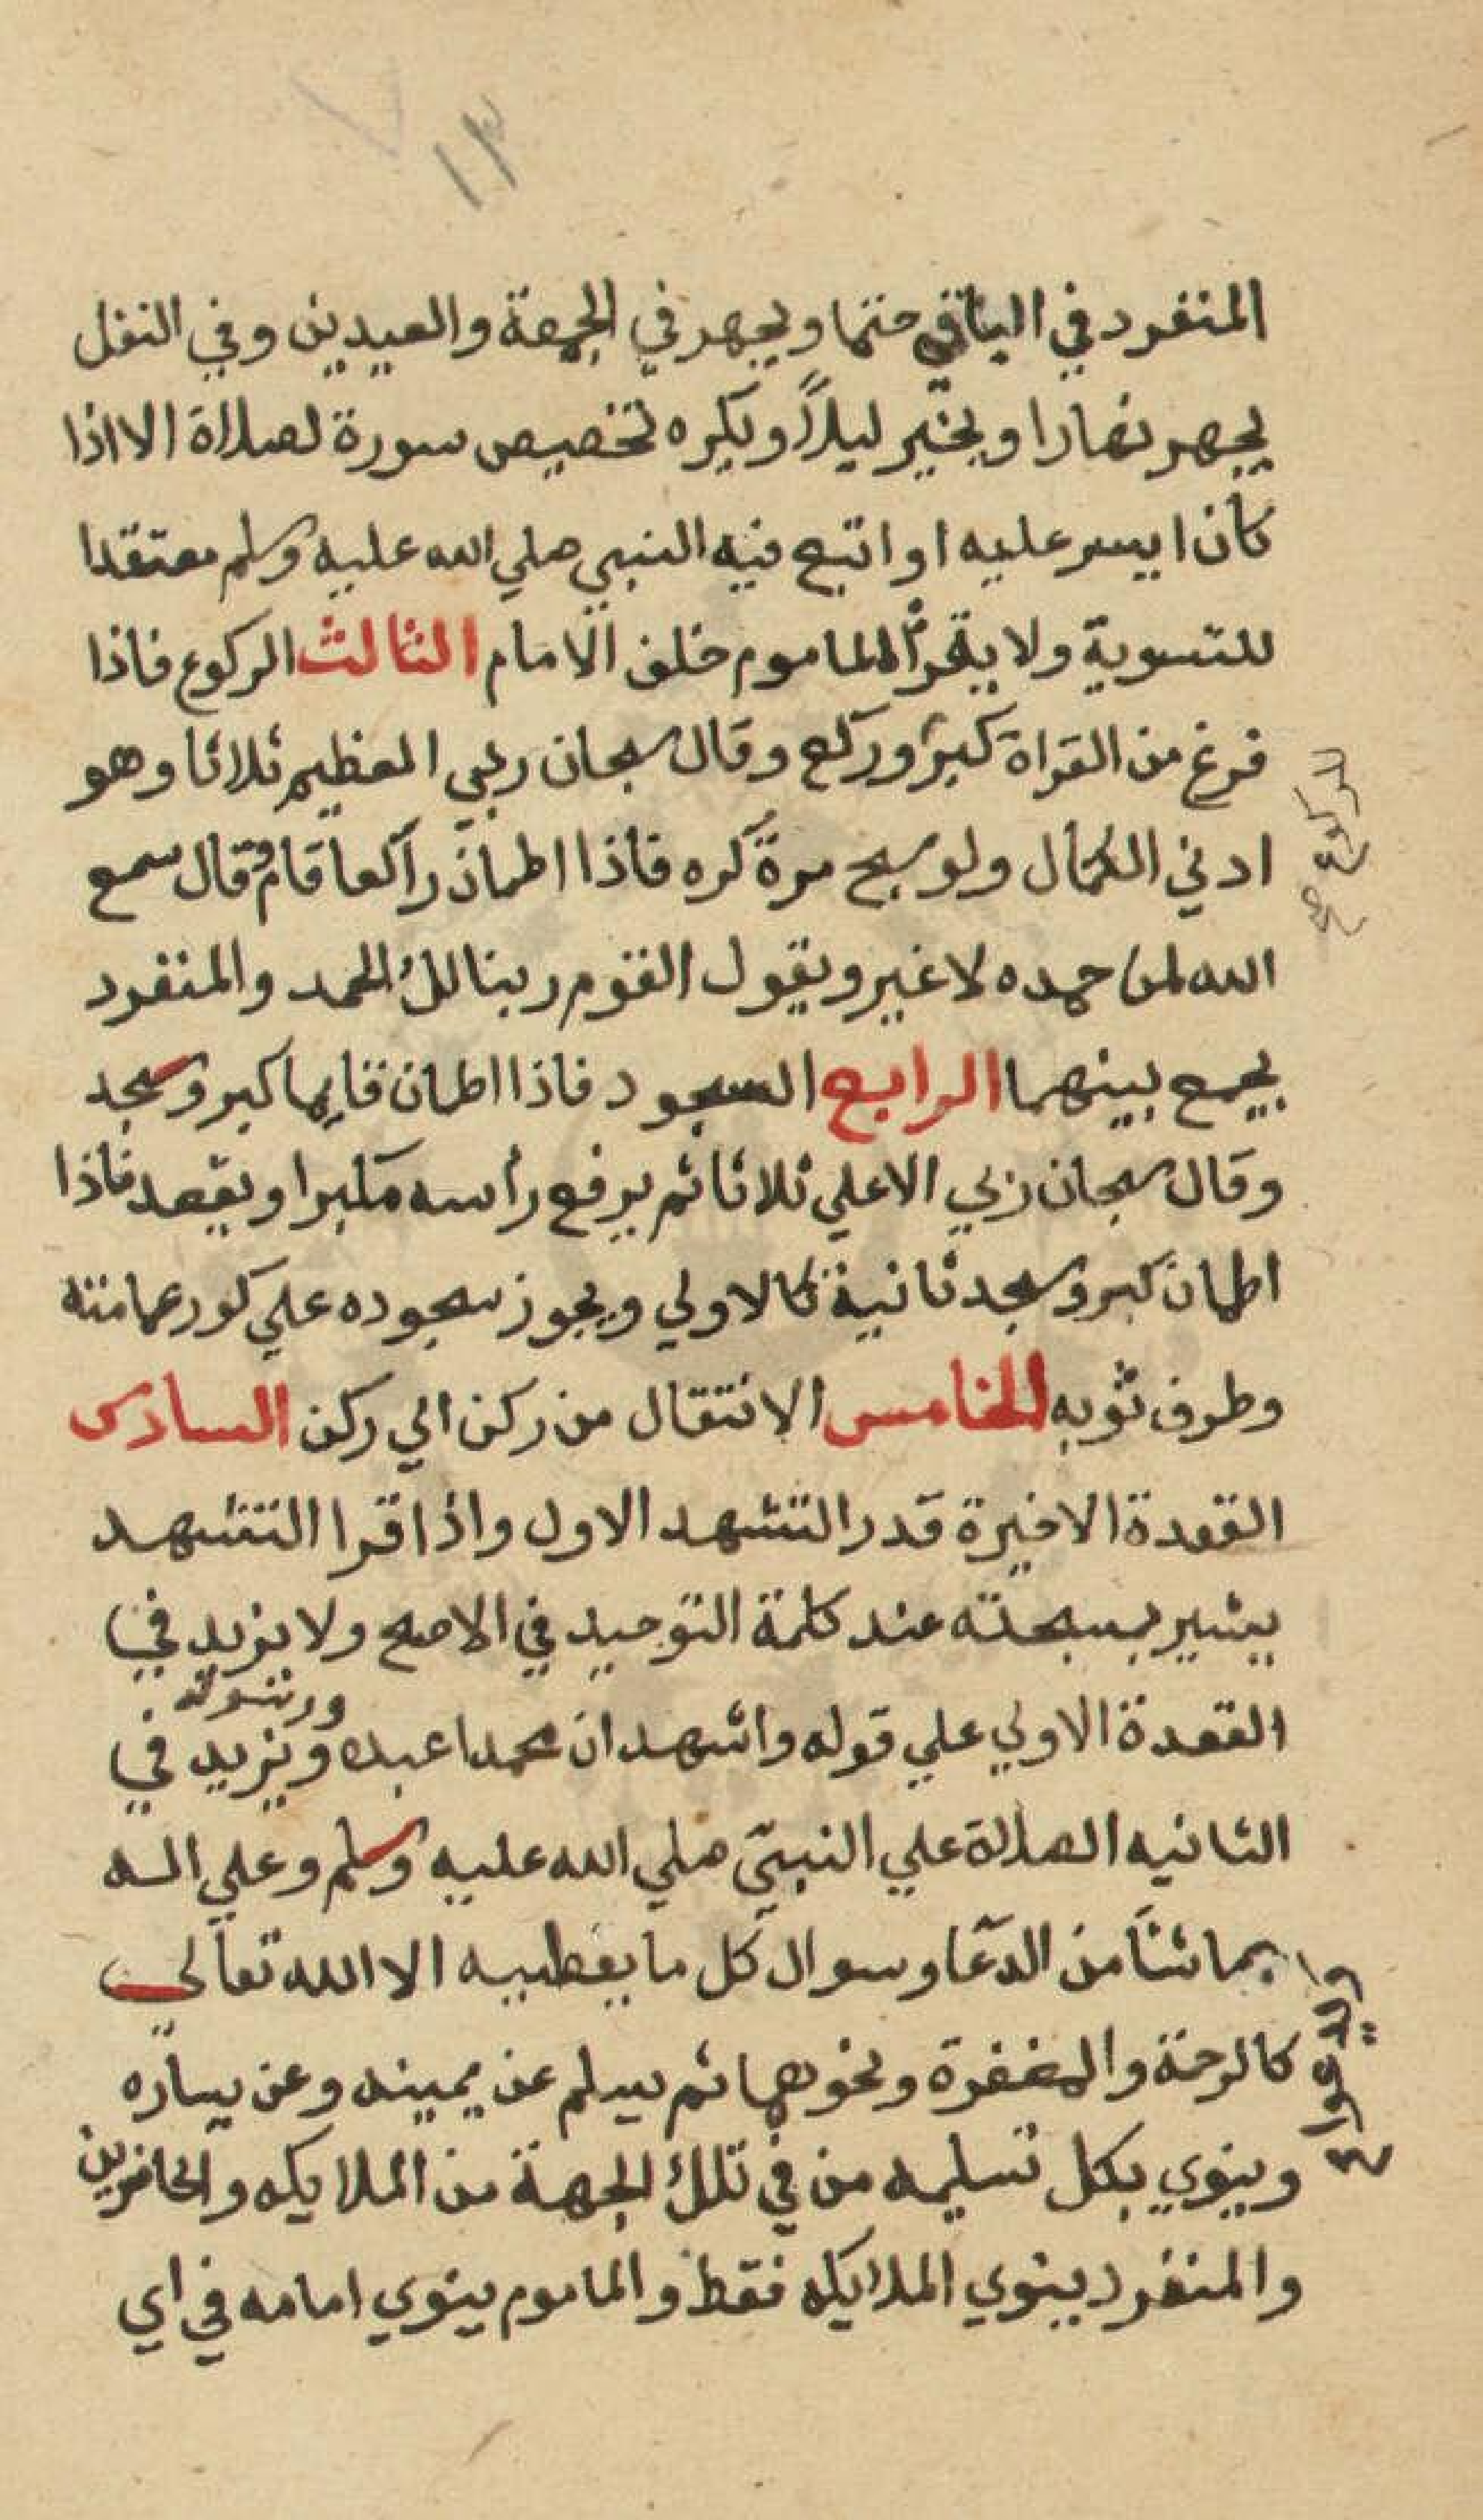 ١٣
المنفرد في الباقي حتما ويجهر في الجمعة والعيدين وفي النفل
يجهر نهارا ويخير ليلا ويكره تخصيص سورة لصلاة الا اذا
كان ايسر عليه او اتبع فيه النبي صلي الله عليه وسلم معتقدا
للتسوية ولا يقرأ الماموم خلف الامام الثالث الركوع فاذا
فرغ من القراة كبر وركع وقال سبحان ربي العظيم ثلاثا وهو
ادني الكمال ولو سبح مرة كره فاذا اطمان راكعا قام وقال سمع
الله لمن حمده لا غير ويقول القوم ربنا لك الحمد والمنفرد
يجمع بينهما الرابع السجود فاذا اطمان قايما كبر وسجد
وقال سبحان ربي الاعلي ثلاثا ثم يرفع رأسه مكبرا ويقعد فاذا
اطمان كبر وسجد ثانية كالاولي ويجوز سجوده علي كور عمامته
وطرف ثوبه الخامس الانتقال من ركن الي ركن السادس
القعدة الاخيرة قدر التشهد الاول واذا قرا التشهد
يشير بسبحته عند كلمة التوحيد في الاصح ولا يزيد في
القعدة الاولي علي قوله واشهد ان محمدا عبده ورسوله ويزيد في
الثانيه الصلاة علي النبي صلي الله عليه وسلم وعلي اله
بما شا من الدعا وسوال كل ما يعطيه الا الله تعالي
كالرحمة والمغفرة ونحوهما ثم يسلم عن يمينه وعن يساره
وينوي بكل تسليمه من في تلك الجهة من الملايكه والحاضرين
والمنفرد ينوي الملايكه فقط والماموم ينوي امامه في اي